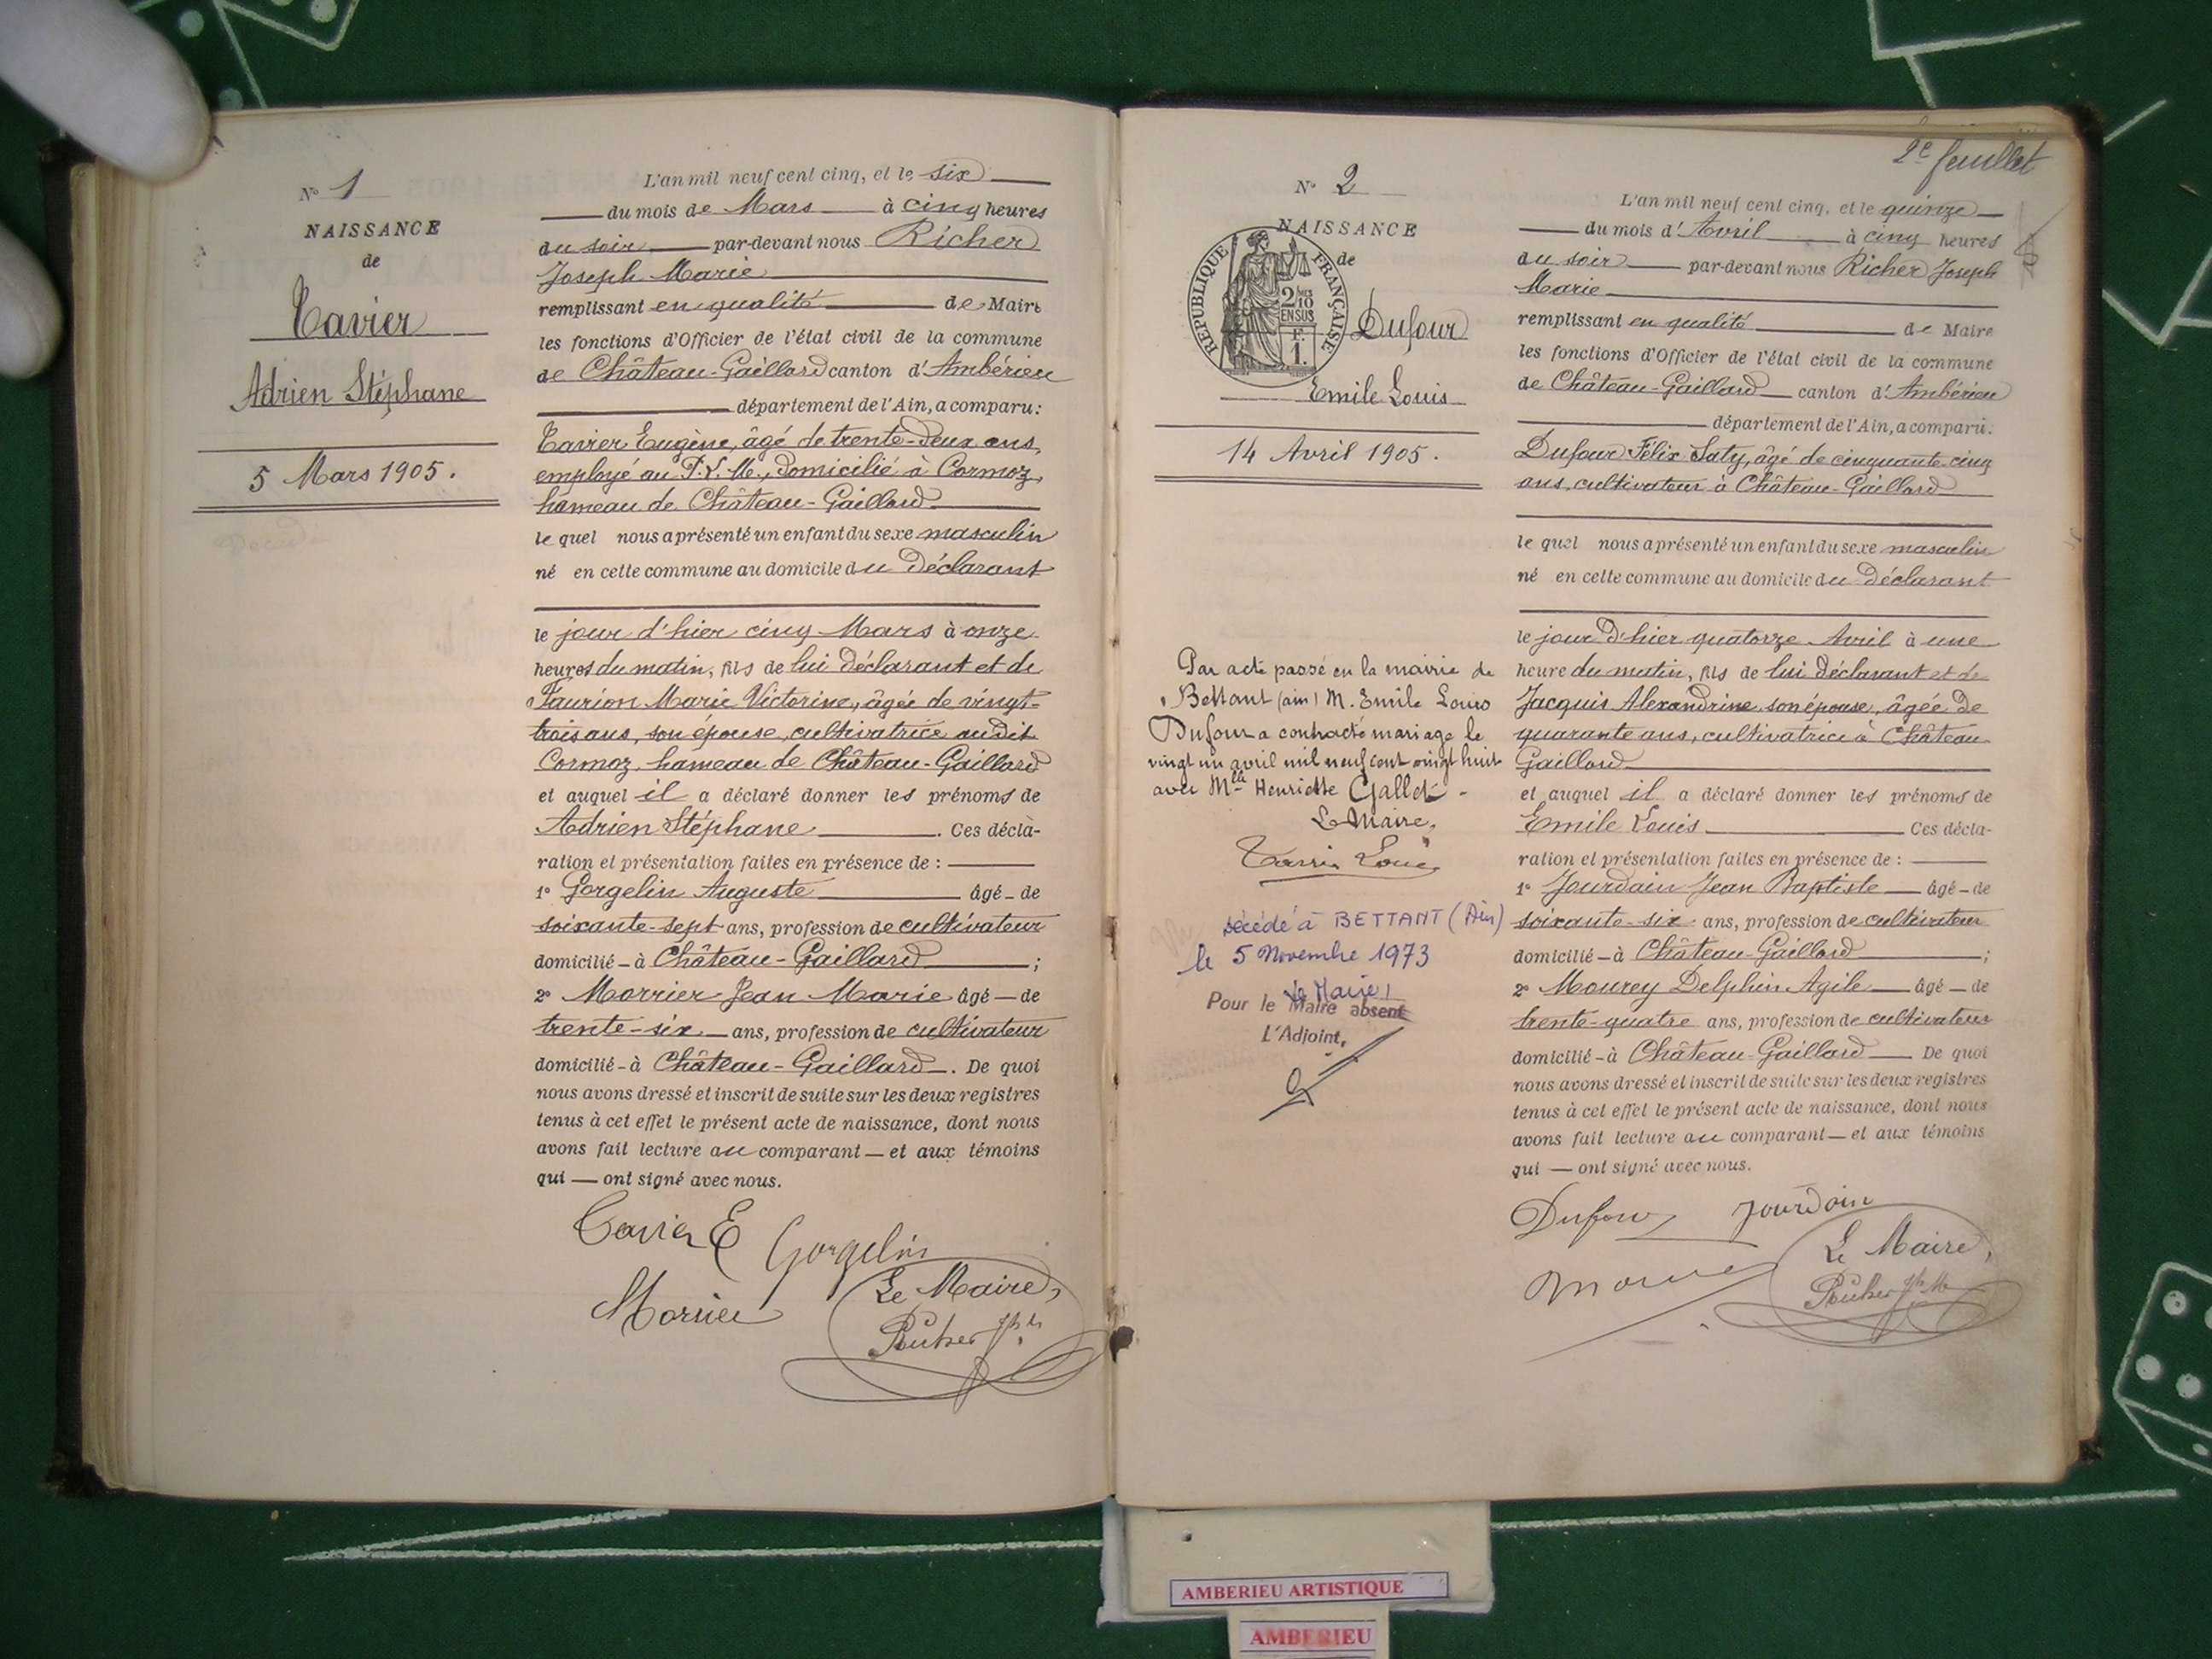 N° 1
NAISSANCE
de
Tavier
Adrien Stéphane
5 Mars 1905.
L'an mil neuf cent cinq, et le six
du mois de Mars à cinq heures
du soir par-devant nous Richer
Joseph Marie
remplissant en qualité de Maire
les fonctions d'Officier de l'état civil de la commune
de Château-Gaillard canton d'Ambérieu
département de l'Ain, a comparu:
Tavier Eugène, âgé de trente-deux ans,
employé au P.L.M., domicilié à Cormoz,
hameau de Château-Gaillard
le quel nous a présenté un enfant du sexe masculin
né en cette commune au domicile du Déclarant
le jour d'hier cinq Mars à onze
heures du matin, fils de lui déclarant et de
Marie Victorine, âgée de vingt-
trois ans, son épouse, cultivatrice audit
Cormoz, hameau de Château-Gaillard
et auquel il a déclaré donner les prénoms de
Adrien Stéphane. Ces décla-
ration et présentation faites en présence de :
1° Gorgelin Auguste âgé de
soixante-sept ans, profession de cultivateur
domicilié à Château-Gaillard ;
2° Morrier Jean Marie âgé de
trente-six ans, profession de cultivateur
domicilié à Château-Gaillard. De quoi
nous avons dressé et inscrit de suite sur les deux registres
tenus à cet effet le présent acte de naissance, dont nous
avons fait lecture au comparant et aux témoins
qui ont signé avec nous.
Tavier E Gorgelin
Morrier Le Maire,
Richer
2e feuillet
N° 2
NAISSANCE
de
RÉPUBLIQUE FRANÇAISE
2/10
EN SUS
F.
1.
Dufour
Emile Louis
14 Avril 1905.
Par acte passé en la mairie de
Bettant (ain) M. Emile Louis
Dufour a contracté mariage le
vingt un avril mil neuf cent vingt huit
avec Mlle Henriette Gallet.
Le Maire,
décédé à BETTANT (Ain)
le 5 Novembre 1973
Le Maire
Pour le Maire absent
L'Adjoint,
L'an mil neuf cent cinq, et le quinze
du mois d'Avril à cinq heures
du soir par-devant nous Richer Joseph
Marie
remplissant en qualité de Maire
les fonctions d'Officier de l'état civil de la commune
de Château-Gaillard canton d'Ambérieu
département de l'Ain, a comparu.
Dufour Félix Saty, âgé de cinquante-cinq
ans, cultivateur à Château-Gaillard
le quel nous a présenté un enfant du sexe masculin
né en cette commune au domicile du Déclarant
le jour d'hier quatorze Avril à une
heure du matin, fils de lui déclarant et de
Jacquis Alexandrine, son épouse, âgée de
quarante ans, cultivatrice à Château
Gaillard
et auquel il a déclaré donner les prénoms de
Emile Louis Ces décla-
ration et présentation faites en présence de :
1° Jourdain Jean Baptiste âgé de
soixante-six ans, profession de cultivateur
domicilié à Château-Gaillard ;
2° Mourey Delphin Agile âgé de
trente-quatre ans, profession de cultivateur
domicilié à Château-Gaillard De quoi
nous avons dressé et inscrit de suite sur les deux registres
tenus à cet effet le présent acte de naissance, dont nous
avons fait lecture au comparant et aux témoins
qui ont signé avec nous.
Dufour Jourdain
Le Maire,
Richer
AMBERIEU ARTISTIQUE
AMBERIEU